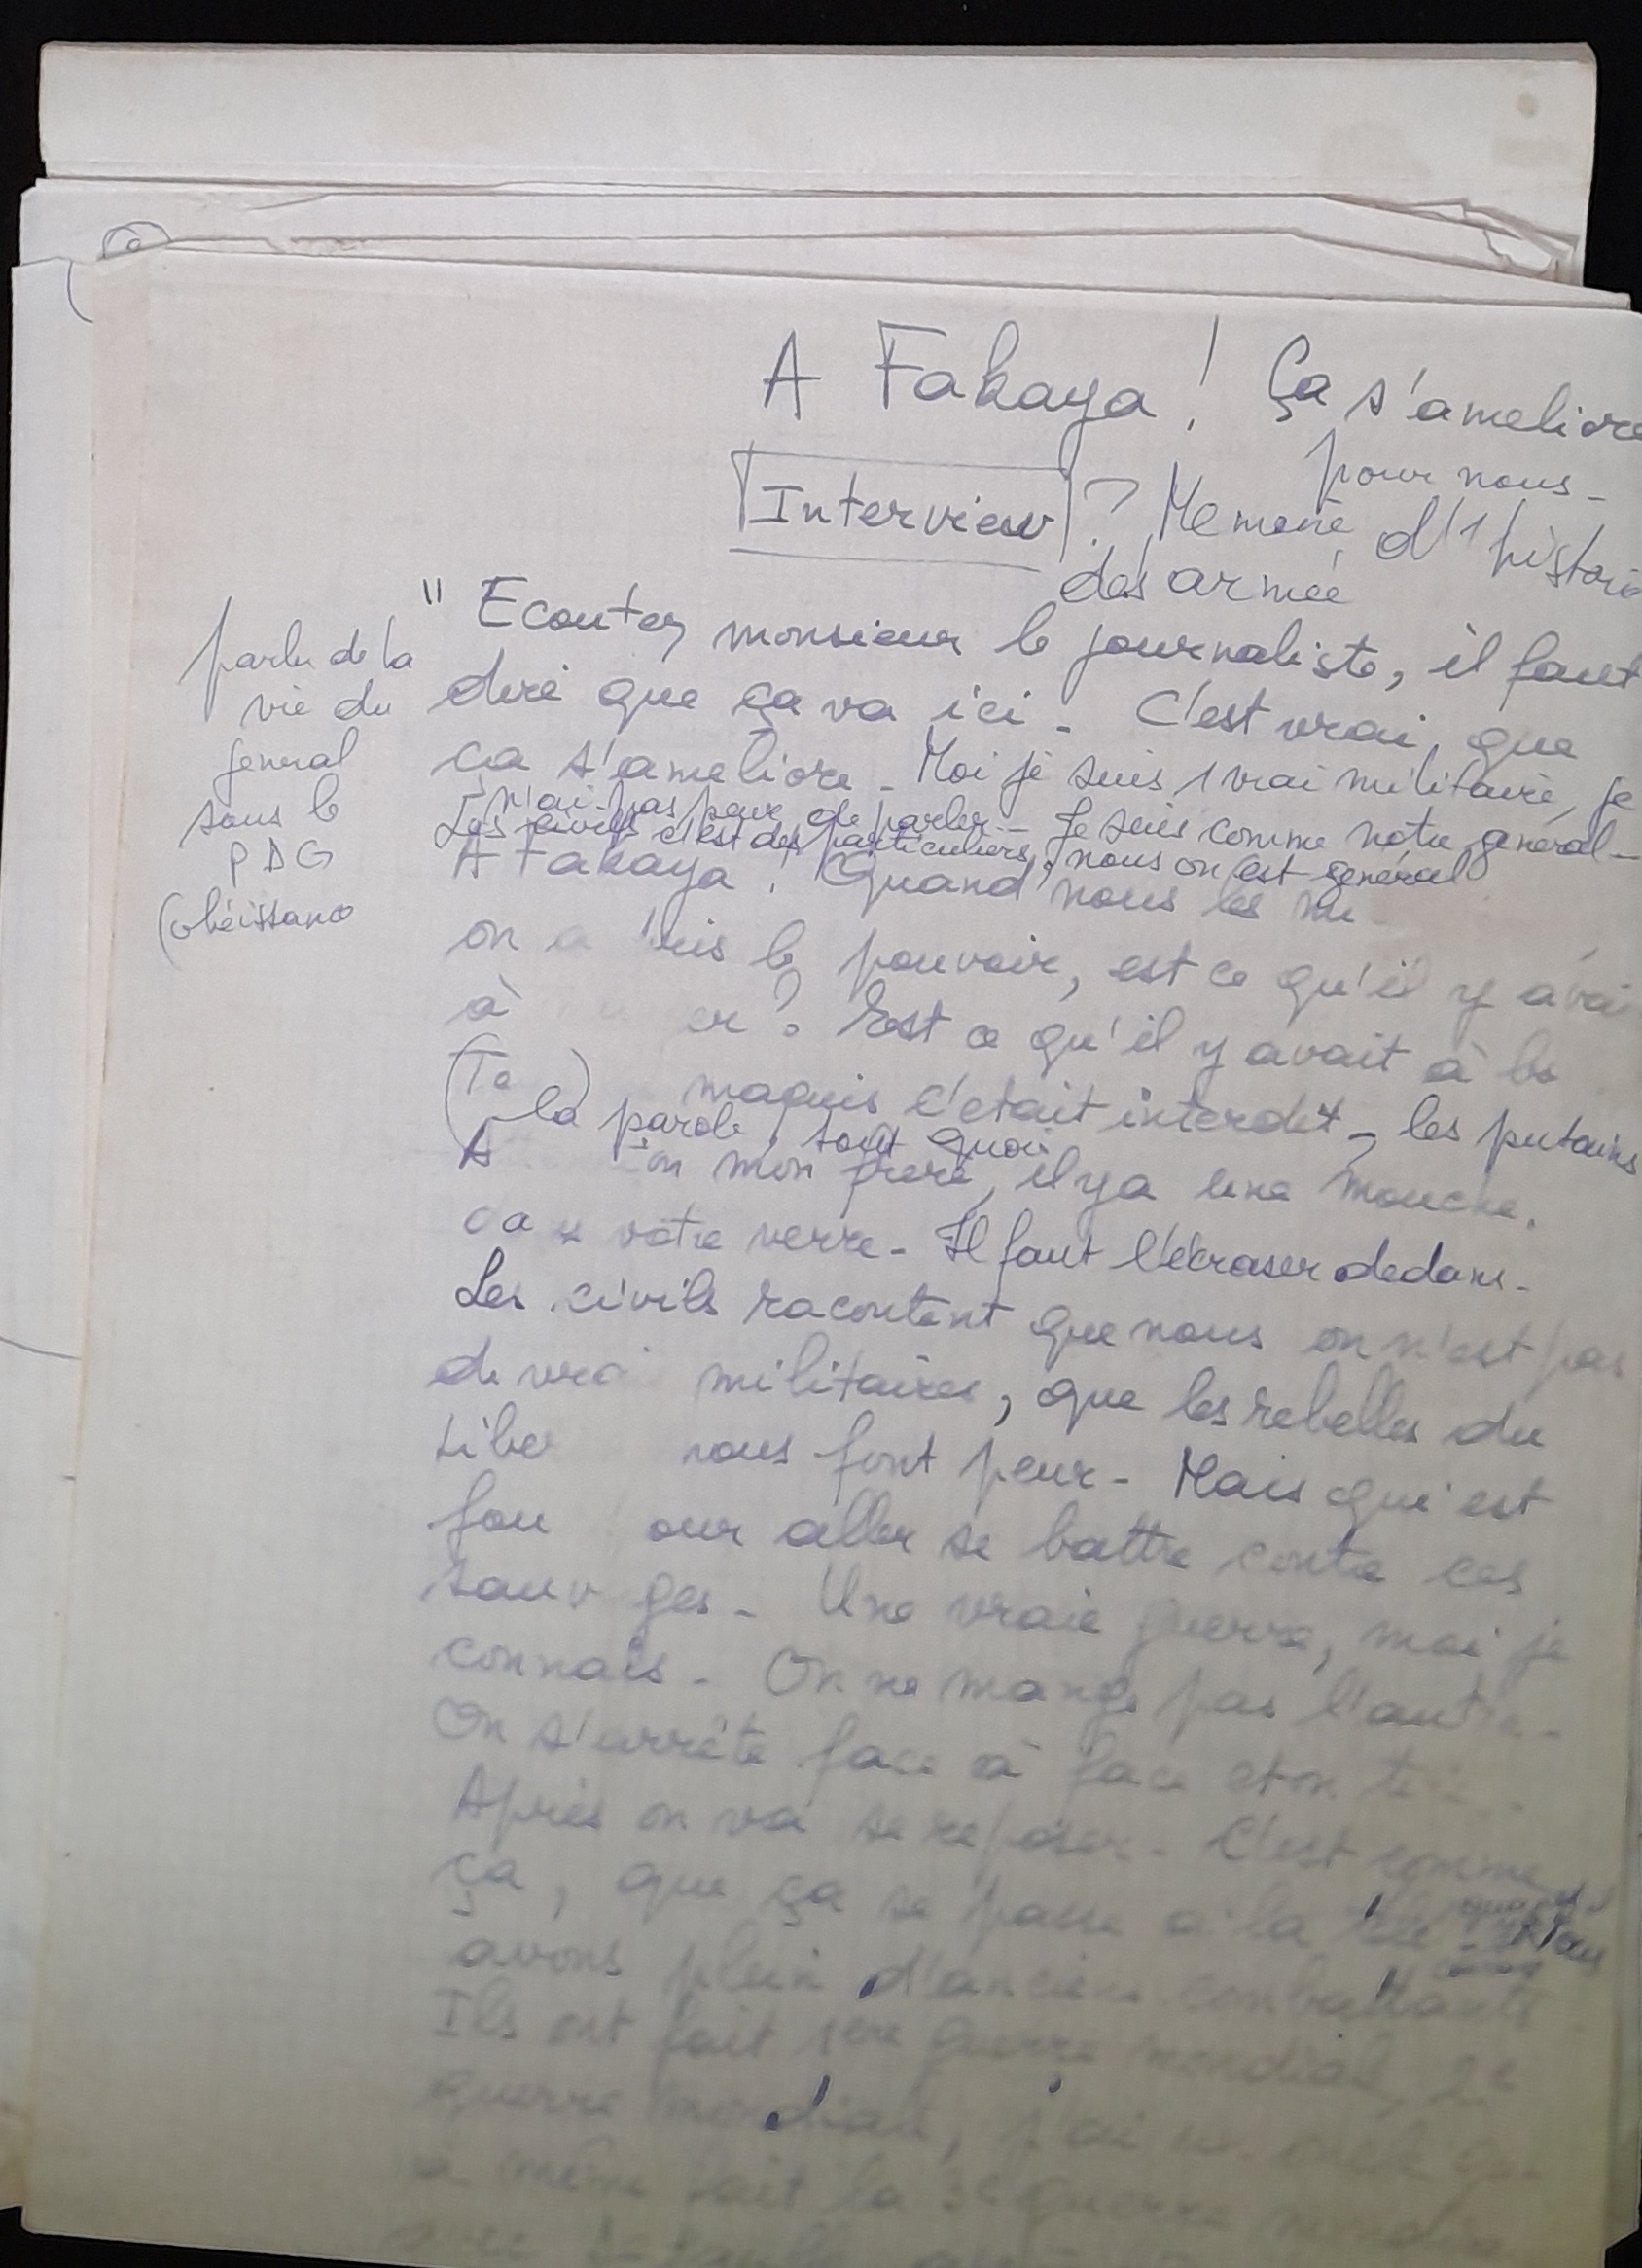 A Fakaya ! Ça s'ameliore
pour nous -
Interview ? Memoire d'1 histoire
des armée
parler de la
vie du
general
sous le
PDG
(obéissance
" Ecoutez monsieur le journaliste, il faut
dire que ça va ici - C'est vrai, que
ça s'ameliore - Moi je suis 1 vrai militaire, je
n'ai pas peur de parler - Je suis comme notre général -
Les civils c'est des particuliers, nous on est général
A Fakaya ! Quand nous les
on a le pouvoir, est ce qu'il y avai
à ? Est ce qu'il y avait à la
maquis c'etait interdit -, les putains
la parole, tout quoi
mon frere, il y a une mouche.
dans votre verre - Il faut l'écraser dedans -
Les civils racontent que nous on n'est pas
de vrai militaires, que les rebelles du
Liber nous font peur - Mais qui est
fou our aller se battre contre ces
sauv ges - Une vraie guerre, moi je
connais - On ne mange pas l'autre -
On s'arrête face à face et on
Après on va se reposer - C'est comme
ça, que ça se passe à la
avons plein d'anciens combattants
Ils ont fait 1ere guerre mondiale, 2e
guerre mondiale, j'ai un oncle qui
a même fait la 3e guerre mondiale